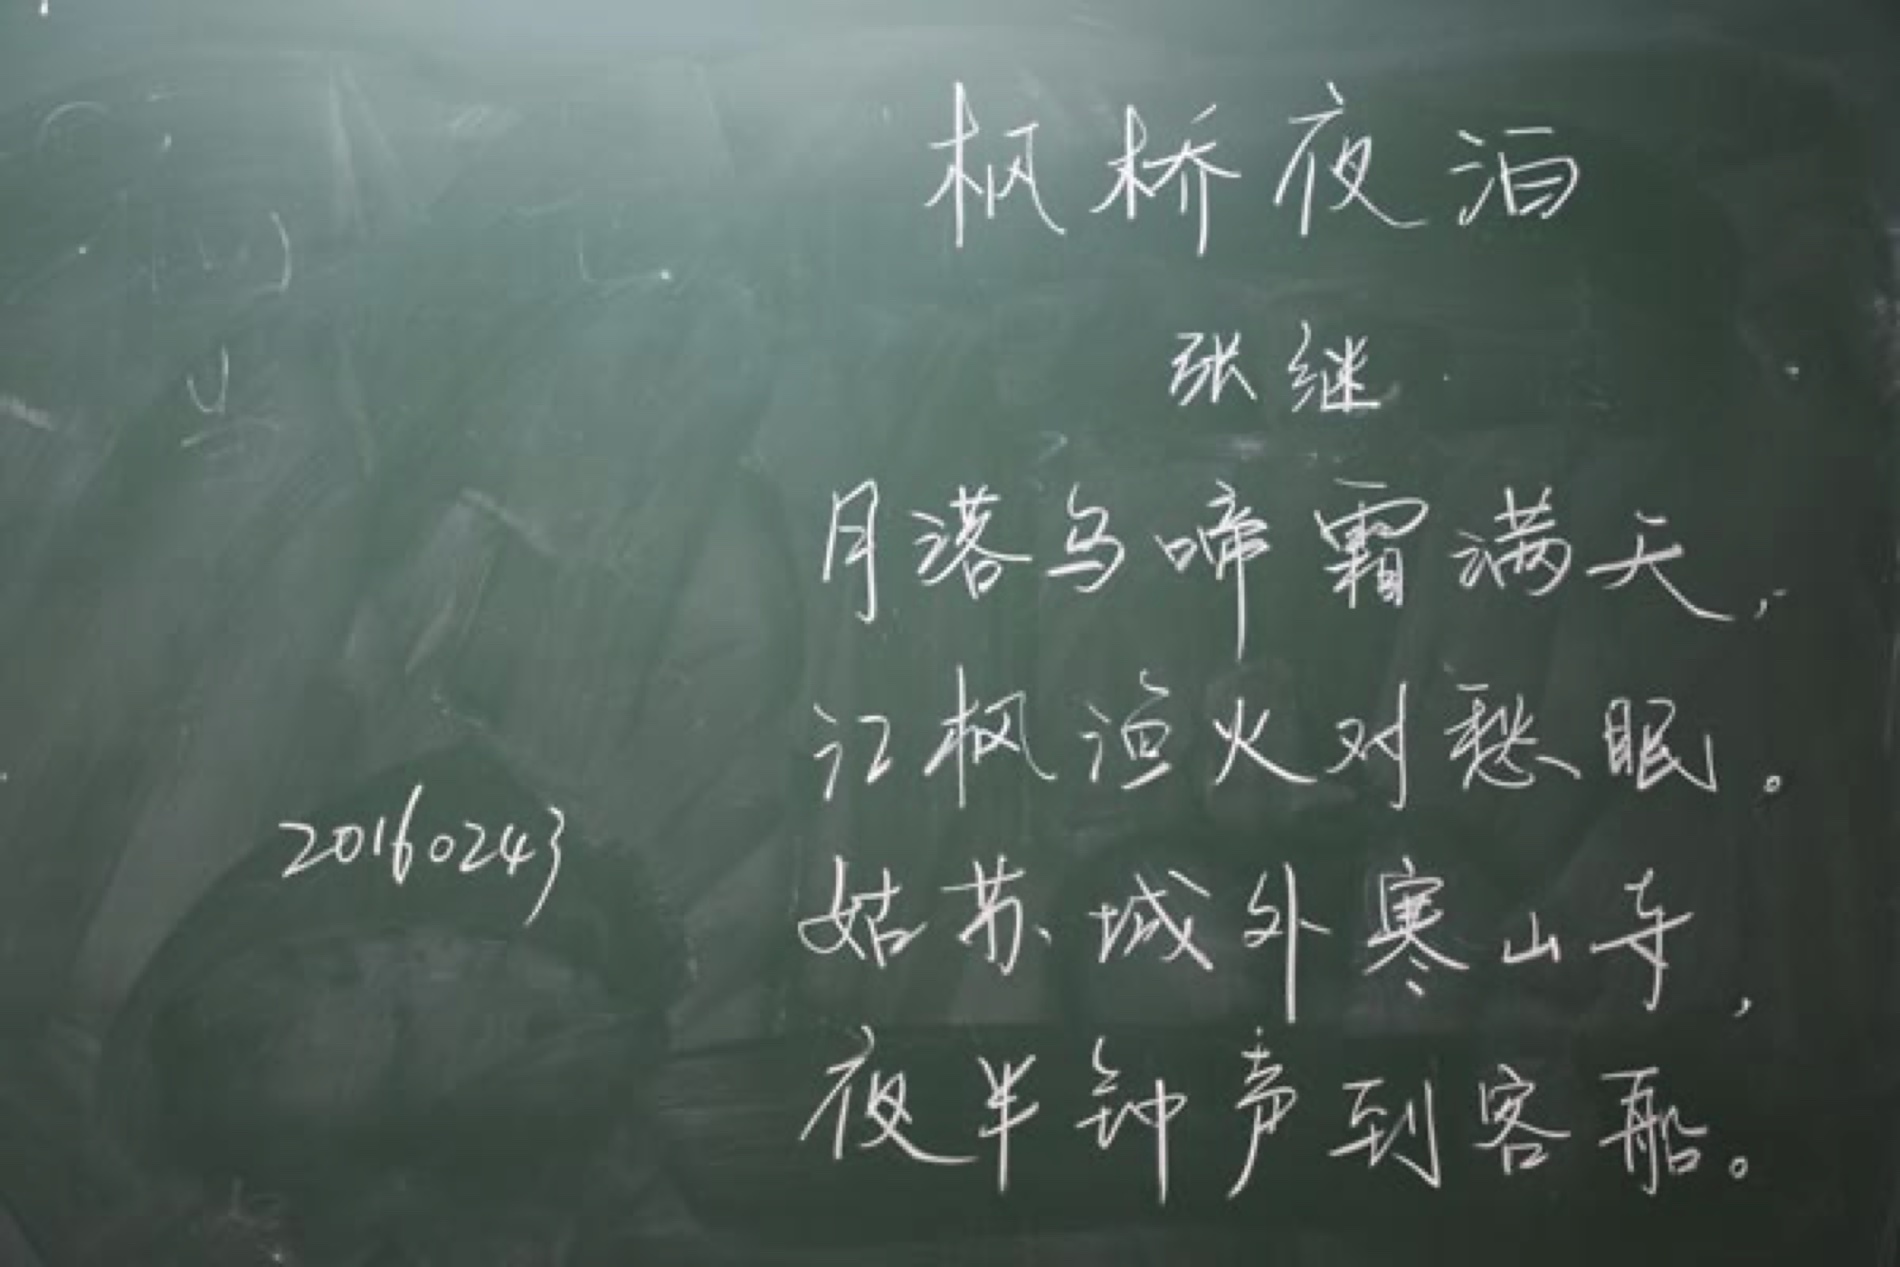 枫桥夜泊
张继
月落乌啼霜满天,
江枫渔火对愁眠。
姑苏城外寒山寺,
夜半钟声到客船。
20160243